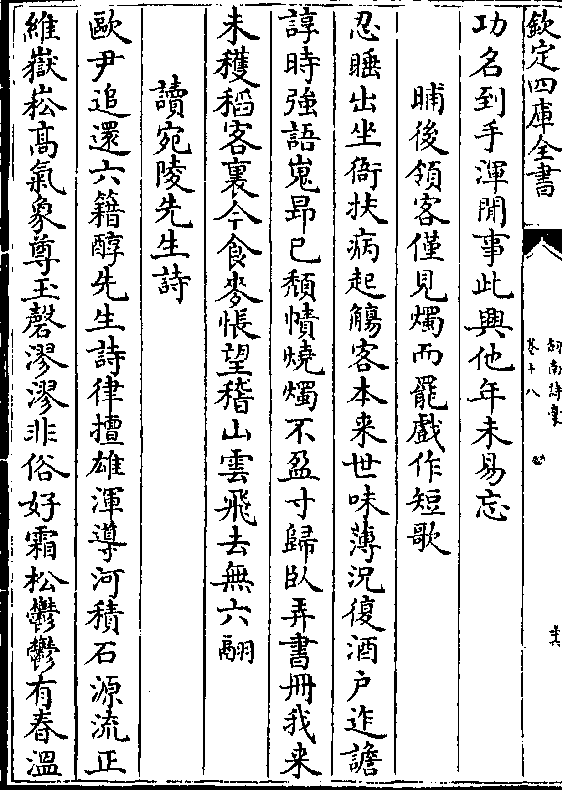 欽定四庫全書
劍南詩稾
卷十八
功名到手渾閒事此興他年未易忘
晡後領客僅見燭而罷戲作短歌
忍睡出坐衙扶病起觴客本来世味薄況復酒户迮譫
諄時強語嵬昻已頹幘燒燭不盈寸歸臥弄書冊我来
未穫稻客裏今食麥悵望稽山雲飛去無六翮
讀宛陵先生詩
歐尹追還六籍醇先生詩律擅雄渾導河積石源流正
維嶽崧髙氣象尊玉磬漻漻非俗好霜松鬱鬱有春溫